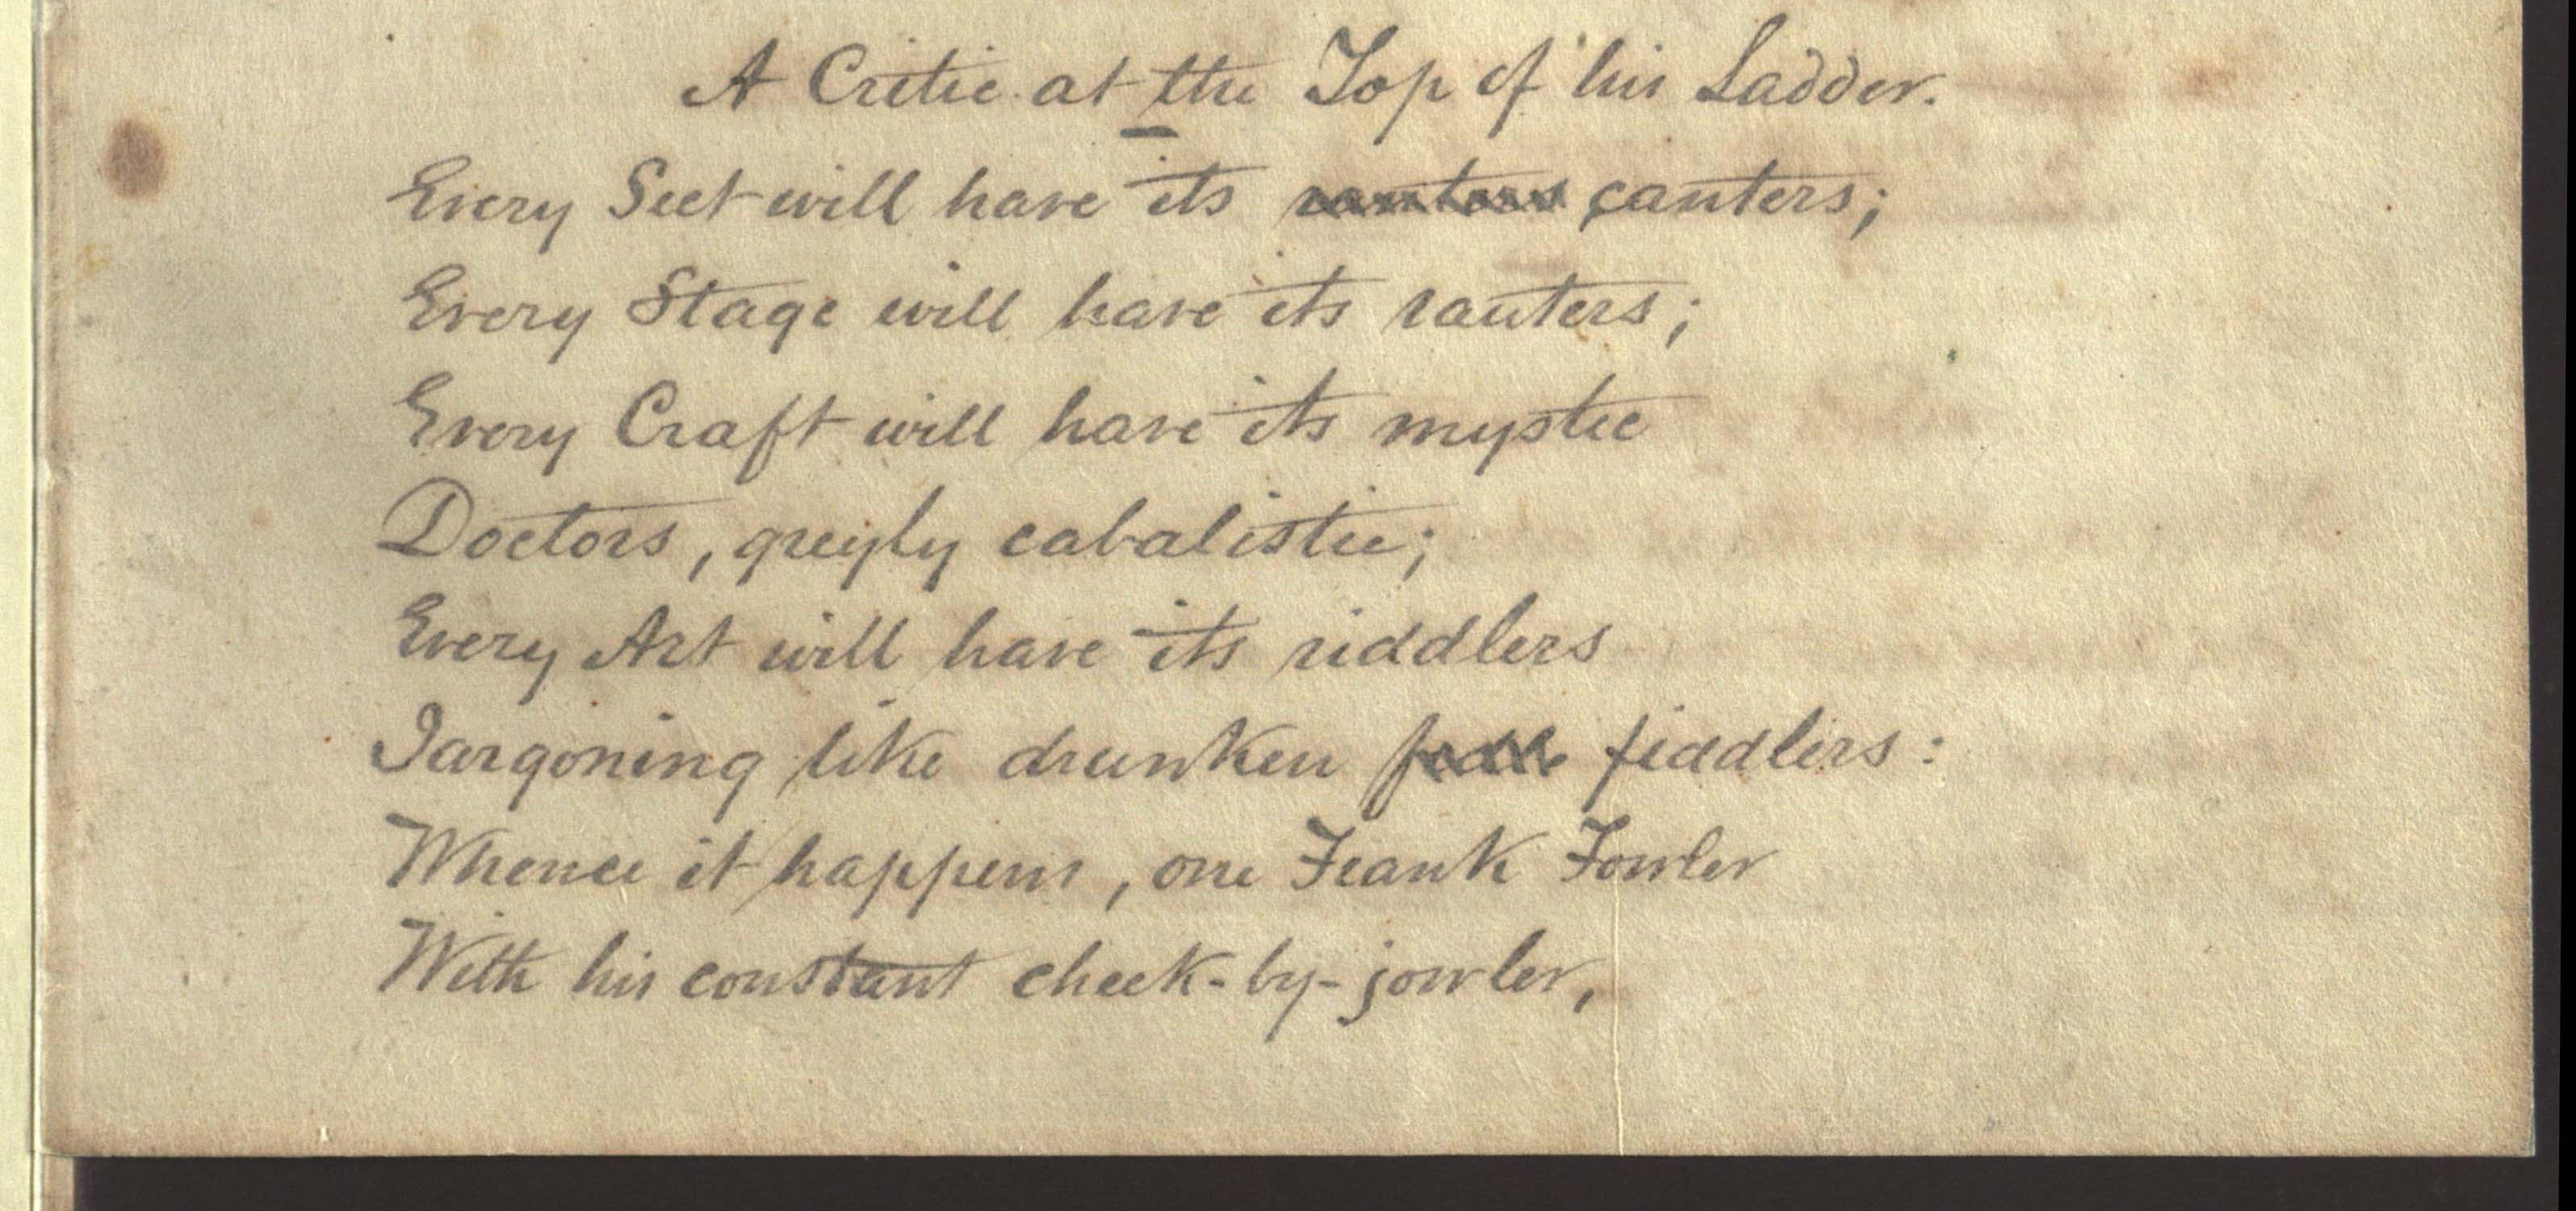 A Critic at the Top of his Ladder.
Every Sect will have its ranters canters;
Every Stage will have its ranters;
Every Craft will have its mystic
Doctors, greyly cabalistic;
Every Art will have its riddlers
Jargoning like drunken fiddlers:
Whence it happens, one Frank Fowler
With his constant cheek-by-jowler,